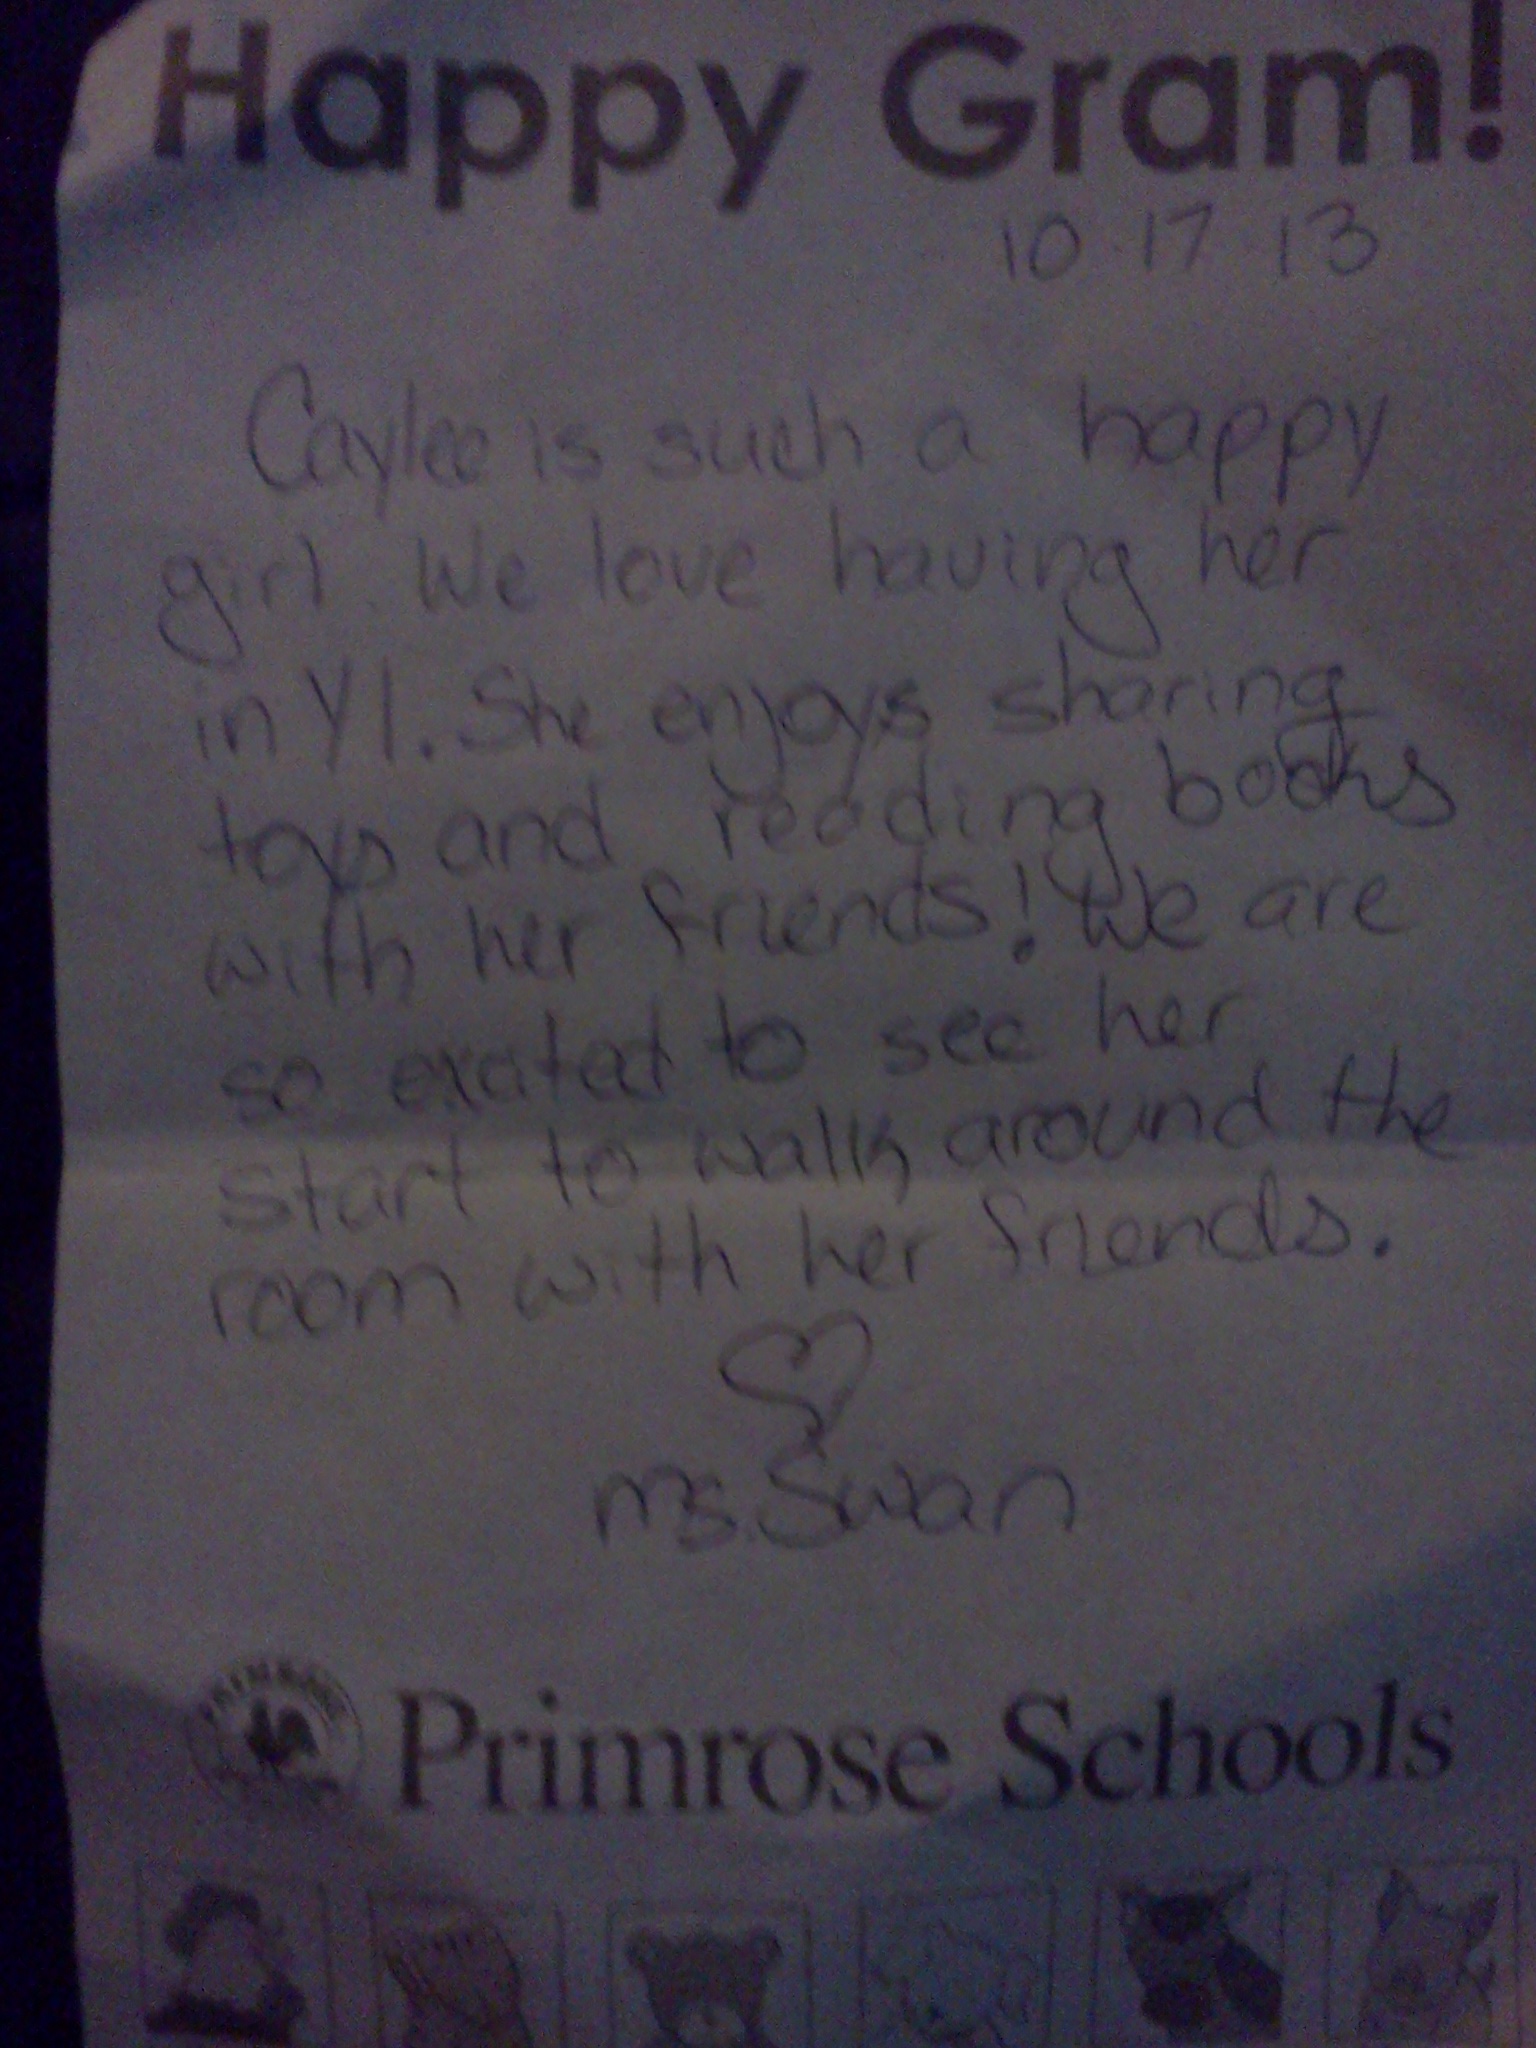 Happy Gram!
10 17 13
Caylee is such a happy
girl. We love having her
in Y1. She enjoys sharing
toys and reading books
with her friends! We are
so exated to see her
start to walk around the
room with her friends.
Ms. Swan
PRIMROSE
Primrose Schools